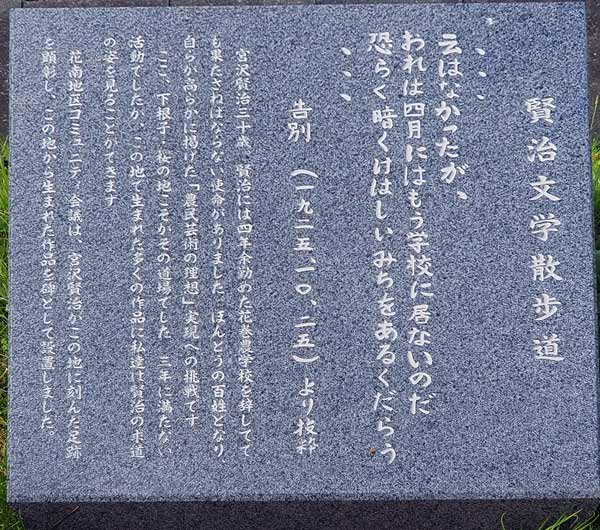 賢治文学散歩道
、、、
云はなかったが、
おれは四月にはもう学校に居ないのだ
恐らく暗くけはしいみちをあるくだらう
、、、
告別 (一九二五、一〇、二五) より抜粋
宮沢賢治三十歳 賢治には四年余勤めた花巻農学校を辞してで
も果たさねばならない使命がありました。ほんとうの百姓となり、
自らか高らかに掲げた「農民芸術の理想」実現への挑戦です
ここ、下根子・桜の地こそがその道場でした 三年に満たない
活動でしたが、この地で生まれた多くの作品に私達は賢治の求道
の姿を見ることができます
花南地区コミュニティ会議は、宮沢賢治がこの地に刻んだ足跡
を顕彰し、この地から生まれた作品を碑として設置しました